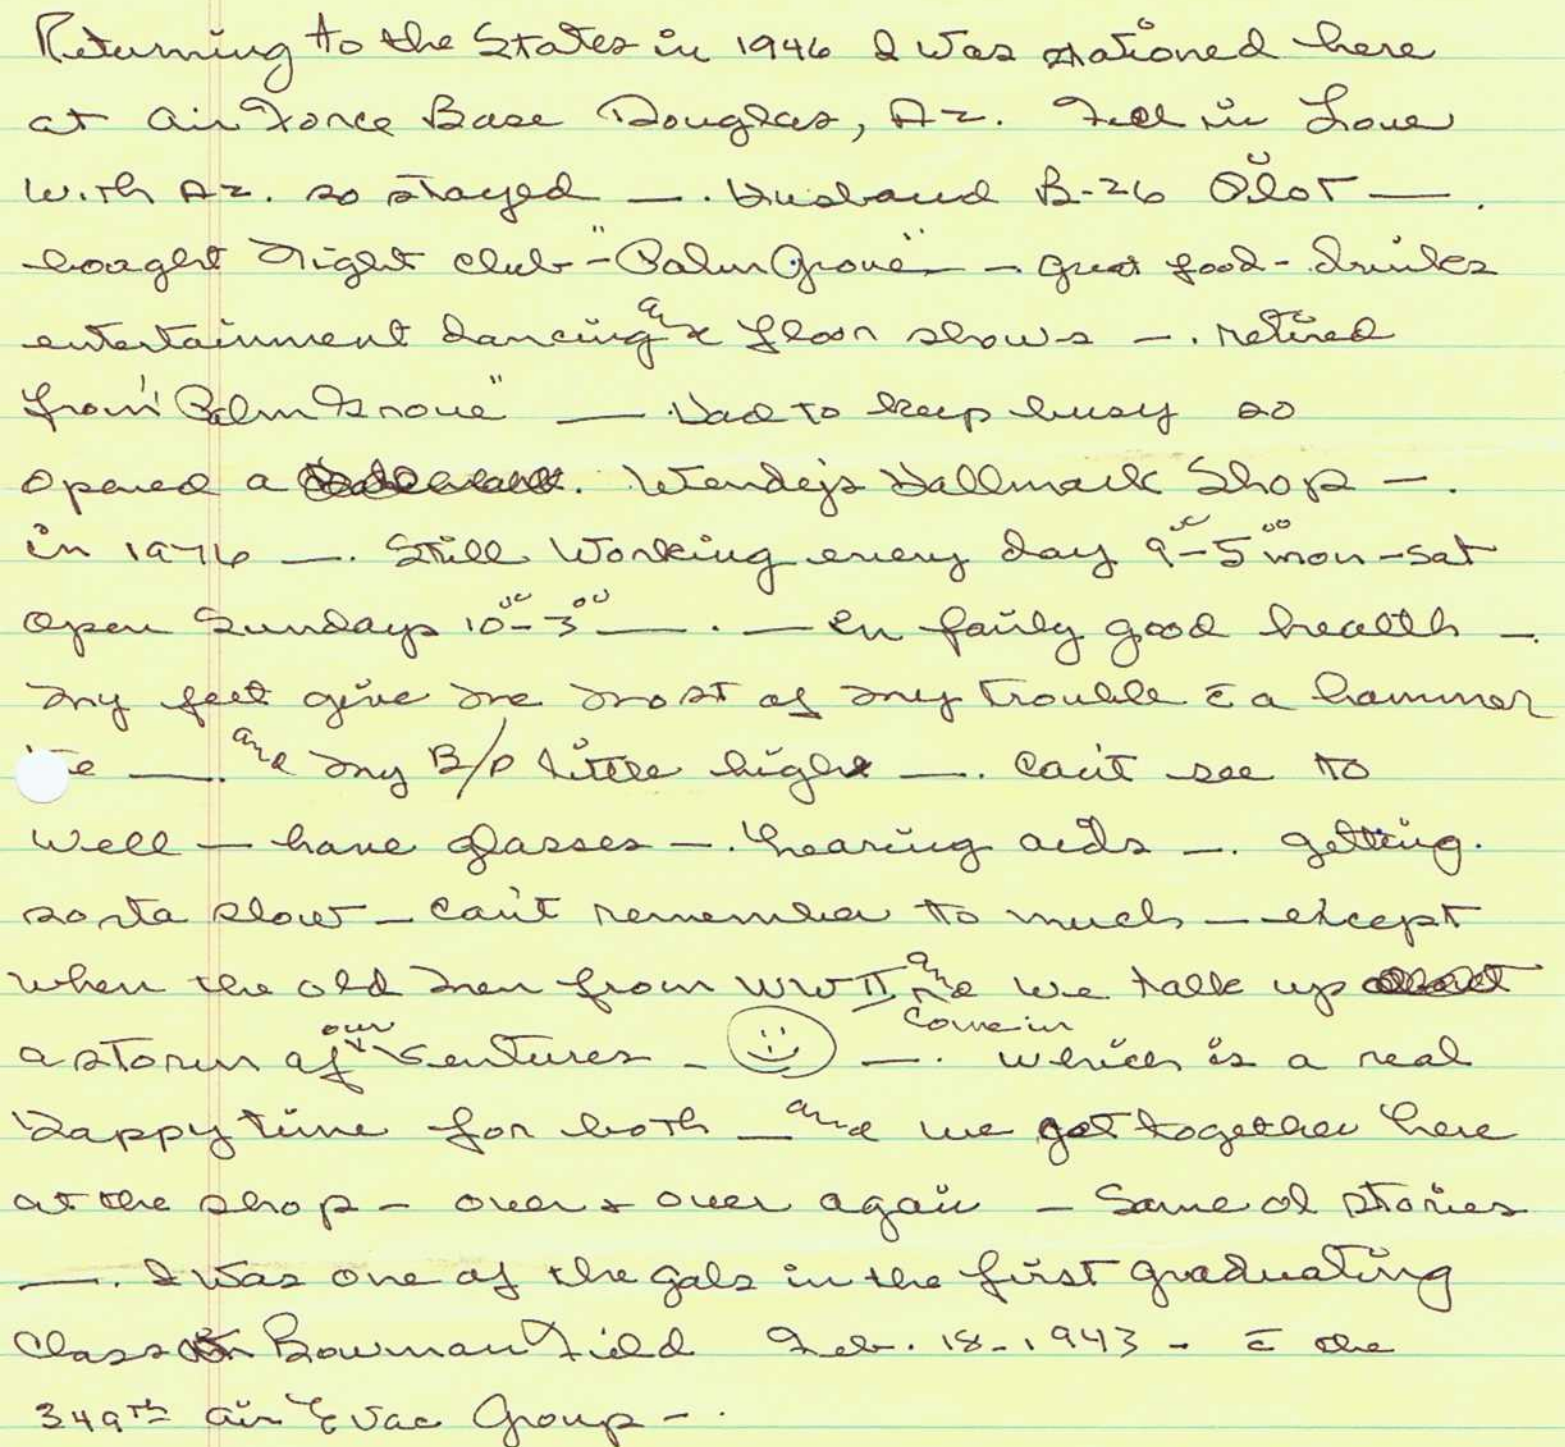 Returning to the States in 1946 I was stationed here
at Air Force Base Douglas, Az. Fell in Love
with Az. so stayed —. Husband B-26 Pilot —.
bought Night club - "Palm Grove" - great food - drinks
entertainment dancing and floor shows —. retired
from "Palm Grove" — Had to keep busy so
opened a Wendy's Hallmark Shop —.
in 1976 —. Still Working every day 9⁰⁰-5⁰⁰ mon-sat
open Sundays 10⁰⁰-3⁰⁰ —. — In fairly good health —.
my feet give me most of my trouble c̄ a hammer
—. and my B/P little high —. Can't see to
well — have glasses —. hearing aids —. getting.
sorta slow — Can't remember to much — except
when the old men from WW II come in and we talk up
a storm of our ventures - —. which is a real
Happy time for both — and we get together here
at the shop - over & over again - Same ol stories
—. I was one of the gals in the first graduating
Class Bowman Field Feb. 18 - 1943 - c̄ the
349th Air Evac Group -.